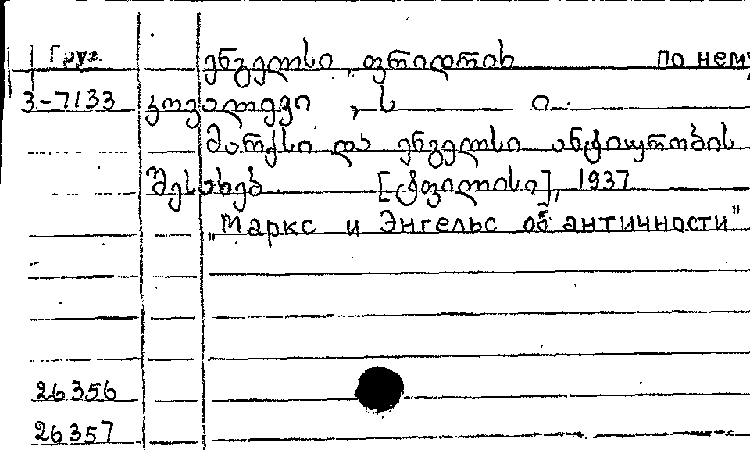 Груз. ენგელსი, ფრიდრიხ по нему
3-7133 კოვალევი, ს. ი.
მარქსი და ენგელსი ანტიურობის
შესახებ [ტფილისი], 1937
"Маркс и Энгельс об античности"
26356
26357